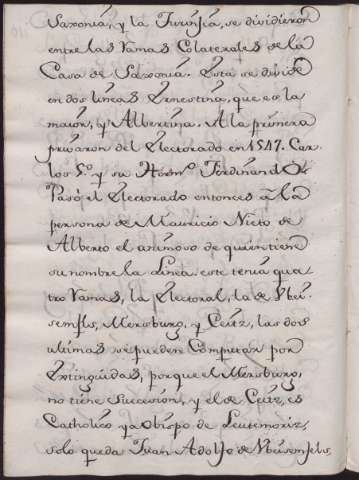 Saxonia, y la Turinsia, se dividieron
entre las Ramas Colaterales de la
Casa de Saxonia. Esta se divide
en dos lineas Ernestina, que es la
maior, y Albertina. A la primera
privaron del Electorado en 1547. Car-
los 5º y su Hermº Ferdinand
Pasó el Electorado entonces a la
persona de Mauricio Nieto de
Alberto el animoso de quien tiene
su nombre la Linea. este tenia qua-
tro Ramas, la Electoral, la de
Mersburg, y Ceitz, las dos
ultimas se pueden Computar por
Extinguidas, porque el Mersburg,
no tiene Succesion, y el de Ceitz, es
Catholico ya Obispo de Leutmeriz,
solo queda Juan Adolfo de